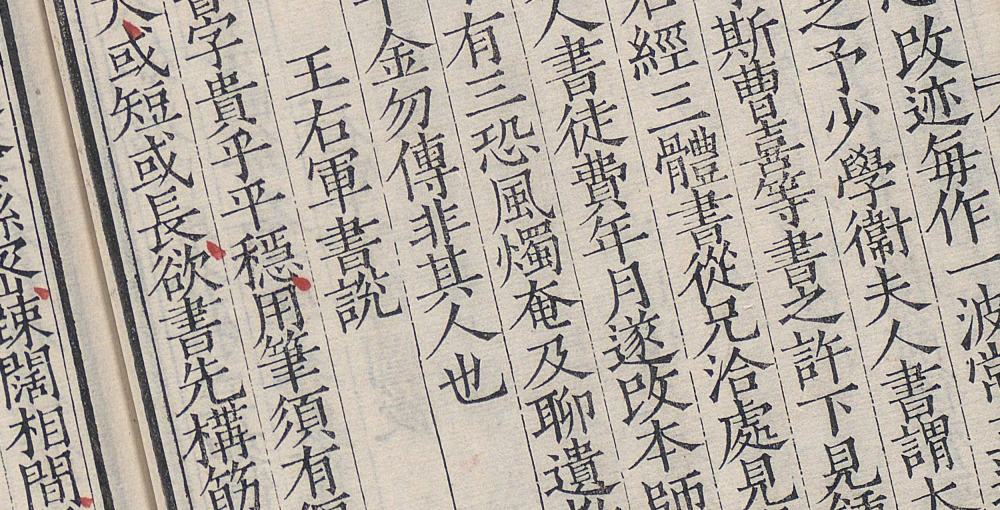 改迹每作一波常
之予少學衞夫人書謂大
斯曹喜等書之許下見鍾
石經三體書從兄洽處見
人書徒費年月遂改本師
有三恐風燭奄及聊遺
千金勿傳非其人也
王右軍書說
書字貴乎平穩用筆須有偃
大或短或長欲書先構筋
疎闊相間